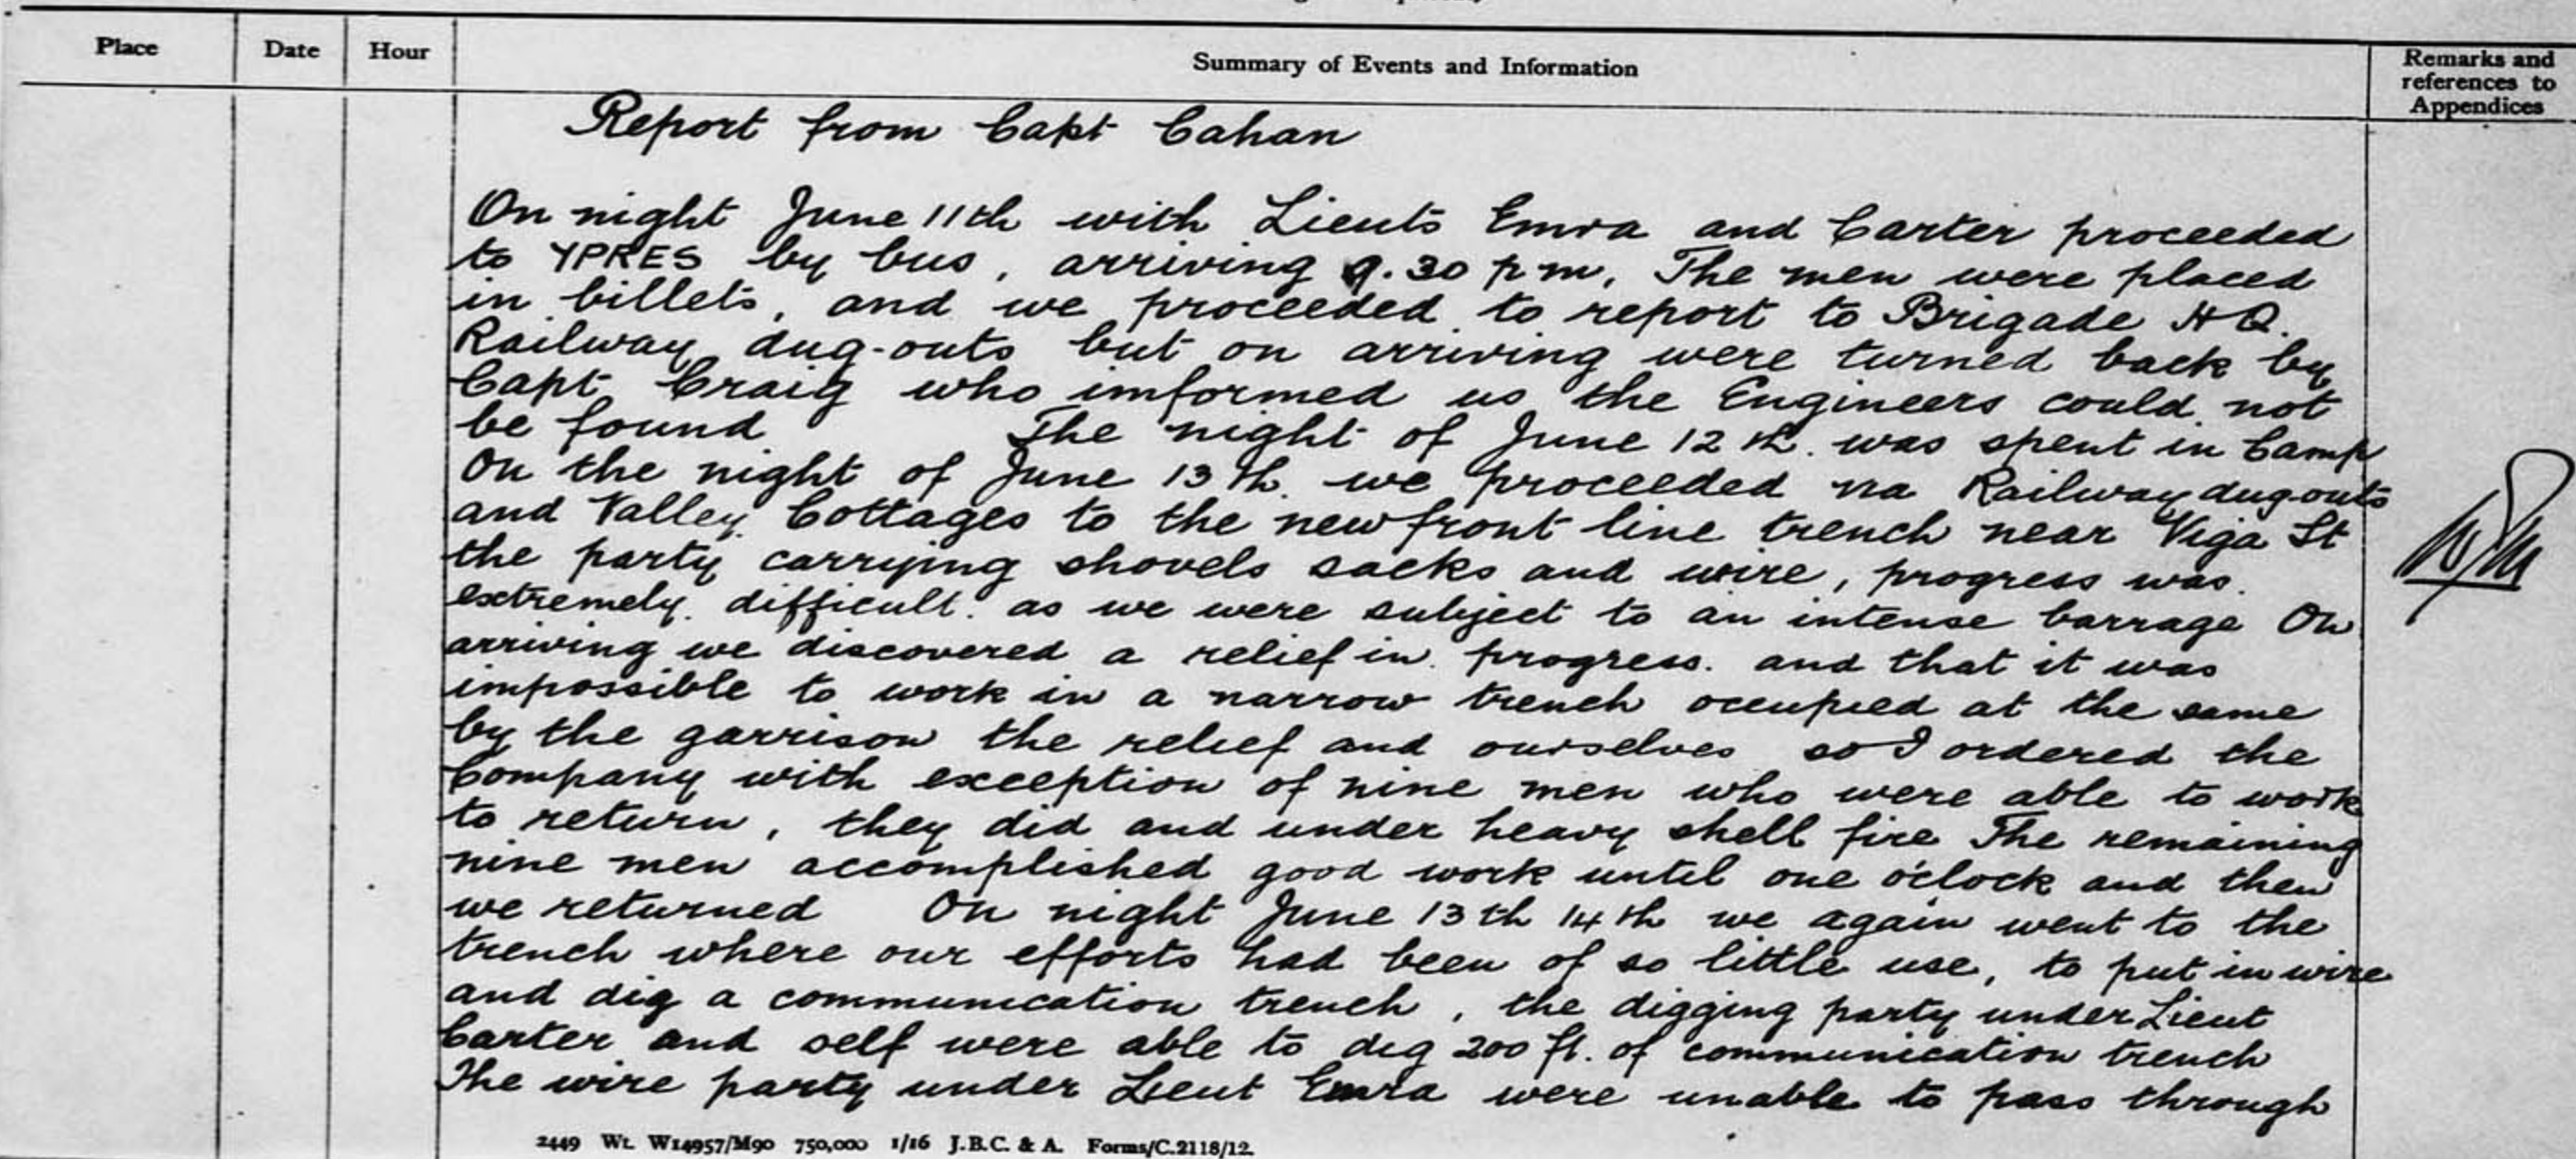 Place Date Hour Summary of Events and Information Remarks and references to Appendices
Report from Capt Cahan
On night June 11th with Lieuts Emra and Carter proceeded
to YPRES by bus, arriving 9.30 pm, The men were placed
in billets, and we proceeded to report to Brigade HQ.
Railway dug-outs but on arriving were turned back by
Capt Craig who imformed us the Engineers could not
be found The night of June 12th. was spent in Camp
On the night of June 13th. we proceeded via Railway dug-outs
and Valley Cottages to the new front line trench near Viga St
the party carrying shovels sacks and wire, progress was.
extremely. difficult. as we were subject to an intense barrage On
arriving we discovered a relief in progress. and that it was
impossible to work in a narrow trench occupied at the same
by the garrison the relief and ourselves so I ordered the
Company with exception of nine men who were able to work
to return, they did and under heavy shell fire The remaining
nine men accomplished good work until one o'clock and then
we returned On night June 13th 14th we again went to the
trench where our efforts had been of so little use, to put in wire
and dig a communication trench, the digging party under Lieut
Carter and self were able to dig 200 ft. of communication trench
The wire party under Lieut Emra were unable to pass through
2449 Wt. W14957/M90 750,000 1/16 J.B.C. & A. Forms/C.2118/12.